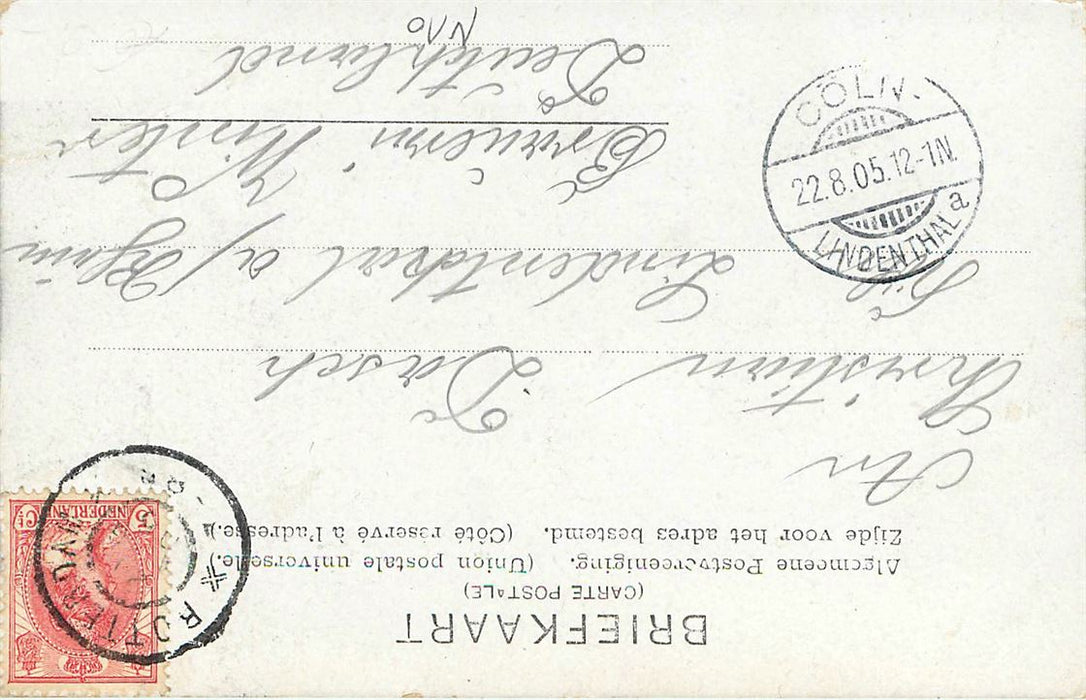 BRIEFKAART
(CARTE POSTALE)
Algemeene Postvereeniging. (Union postale universelle.)
Zijde voor het adres bestemd. (Côté réservé à l'adresse.)
An
Christian Dorsch
Lindenthal a/ Rhein
Brauerei Winter
Deutschland
NEDERLAND
5 Ct
ROTTERDAM
CÖLN-
22.8.05.12-1N.
LINDENTHAL a